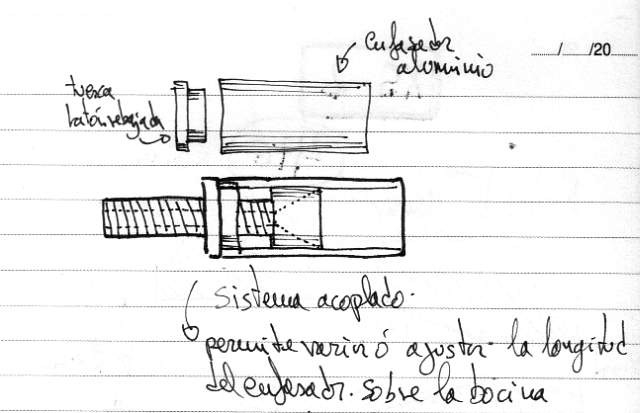 enfasador
aluminio
/ /20
tuerca
latón rebajada
sistema acoplado.
permite variar ó ajustar la longitud
del enfasador. sobre la bocina